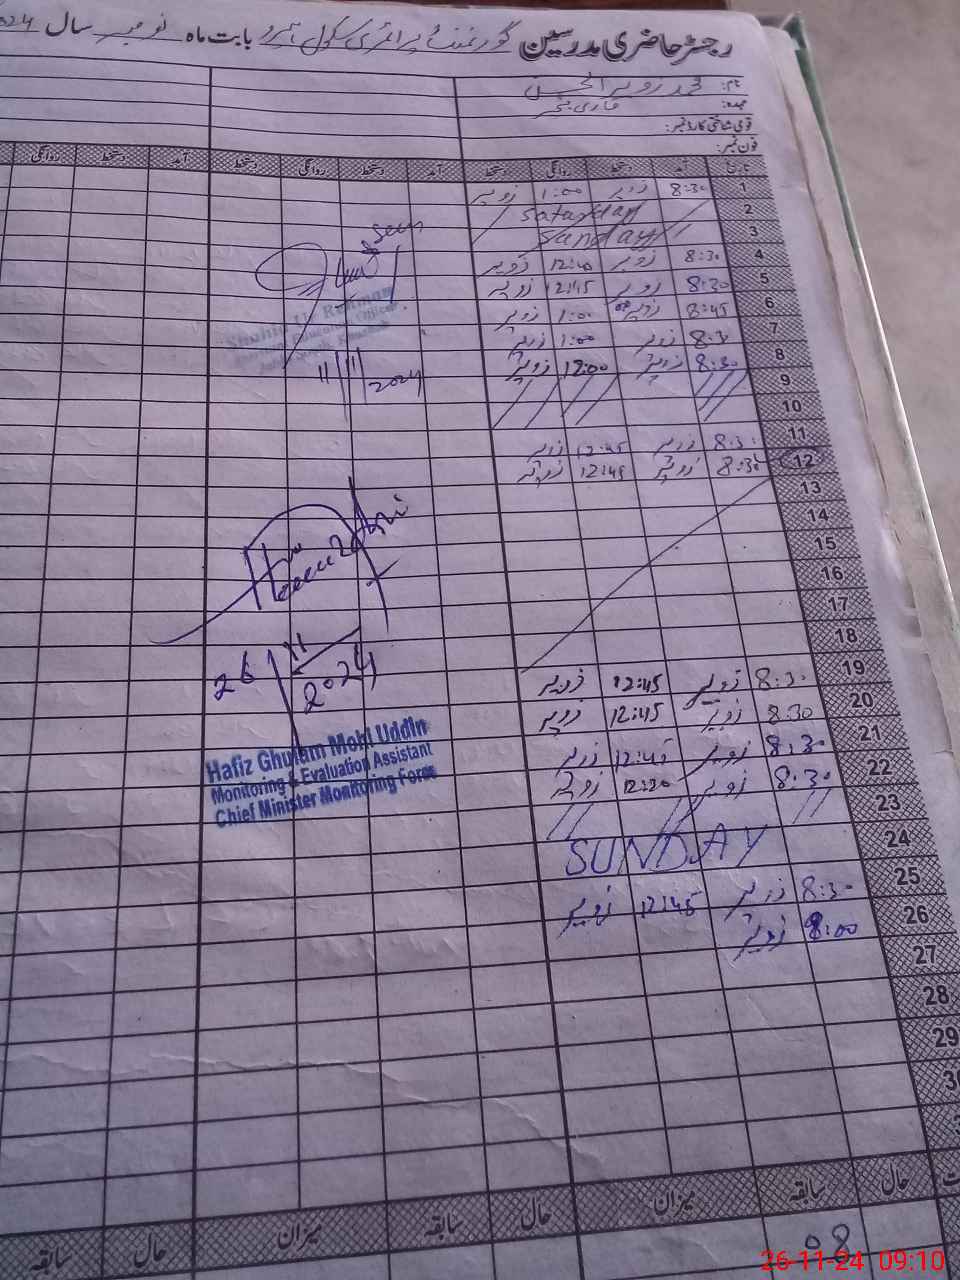 رجسٹر حاضری مدرسین گورنمنٹ پرائمری سکول بابت ماہ نومبر سال 2024
نام: محمد زوہیر الحسن
عہدہ: قاری ٹیچر
قومی شناختی کارڈ نمبر:
فون نمبر:
تاریخ آمد دستخط روانگی دستخط آمد دستخط روانگی دستخط آمد دستخط روانگی
1 8:30 زوہیر 1:00 زوہیر
2 Saturday
3 Sunday
4 8:30 زوہیر 12:40 زوہیر
5 8:30 زوہیر 12:45 زوہیر
6 8:45 زوہیر 1:00 زوہیر
7 8:30 زوہیر 1:00 زوہیر
8 8:30 زوہیر 12:00 زوہیر
9
10
11 8:30 زوہیر 12:45 زوہیر
12 8:30 زوہیر 12:45 زوہیر
13
14
15
16
17
18
19 8:30 زوہیر 12:45 زوہیر
20 8:30 زوہیر 12:45 زوہیر
21 8:30 زوہیر 12:45 زوہیر
22 8:30 زوہیر 12:30 زوہیر
23
24 SUNDAY
25 8:30 زوہیر 12:45 زوہیر
26 8:00 زوہیر
27
28
29
30
Seen
11/11/2024
26/11/2024
Hafiz Ghulam Mohi Uddin
Monitoring & Evaluation Assistant
Chief Minister Monitoring Force
حال سابقہ میزان حال سابقہ میزان حال سابقہ
08
26-11-24 09:10